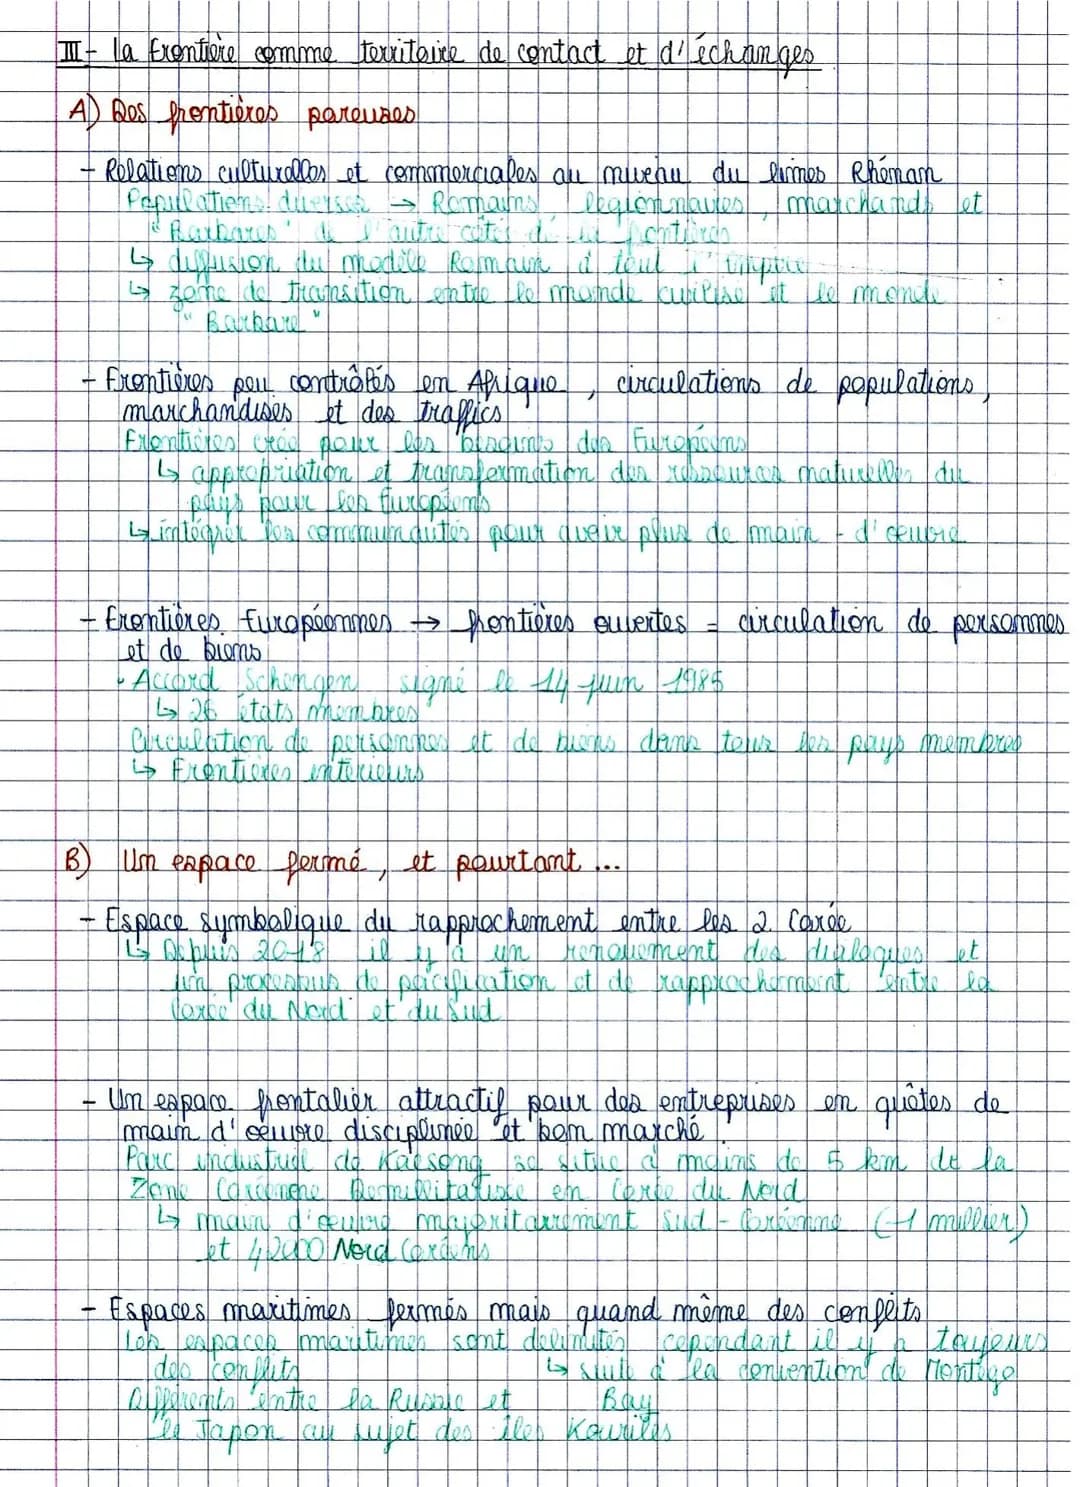 III - la frontière comme territoire de contact et d'échanges
A) Des frontières poreuses
- Relations culturelles et commerciales au niveau du limes Rhénan
Populations diverses → Romains légionnaires, marchands et
"Barbares" de l'autre côtés de la frontières
↳ diffusion du modèle Romain à tout l'Empire
↳ zone de transition entre le monde civilisé et le monde
"Barbare"
- Frontières peu contrôlés en Afrique, circulations de populations,
marchandises et des traffics
Frontières créé pour les besoins des Européens
↳ appropriation et transformation des ressources naturelles du
pays pour les Européens
↳ intégrer les communautés pour avoir plus de main - d'œuvre
- Frontières Européennes → frontières ouvertes = circulation de personnes
et de biens
• Accord Schengen signé le 14 juin 1985
↳ 26 états membres
Circulation de personnes et de biens dans tous les pays membres
↳ Frontières intérieurs
B) Un espace fermé, et pourtant ...
- Espace symbolique du rapprochement entre les 2 Corée
↳ Depuis 2018 il y a un renouement des dialogues et
un processus de pacification et de rapprochement entre la
Corée du Nord et du Sud
- Un espace frontalier attractif pour des entreprises en quiêtes de
main d'œuvre disciplinée et bon marché
Parc industriel de Kaesong se situe à moins de 5 km de la
Zone Coréenne Démilitarisée en Corée du Nord
↳ main d'œuvre majoritairement Sud - Coréenne (-1 millier)
et 42000 Nord Coréens
- Espaces maritimes fermés mais quand même des conflits
Les espaces maritimes sont délimités cependant il y a toujours
des conflits ↳ suite à la convention de Montego
Différents entre la Russie et Bay
le Japon au sujet des îles Kouriles